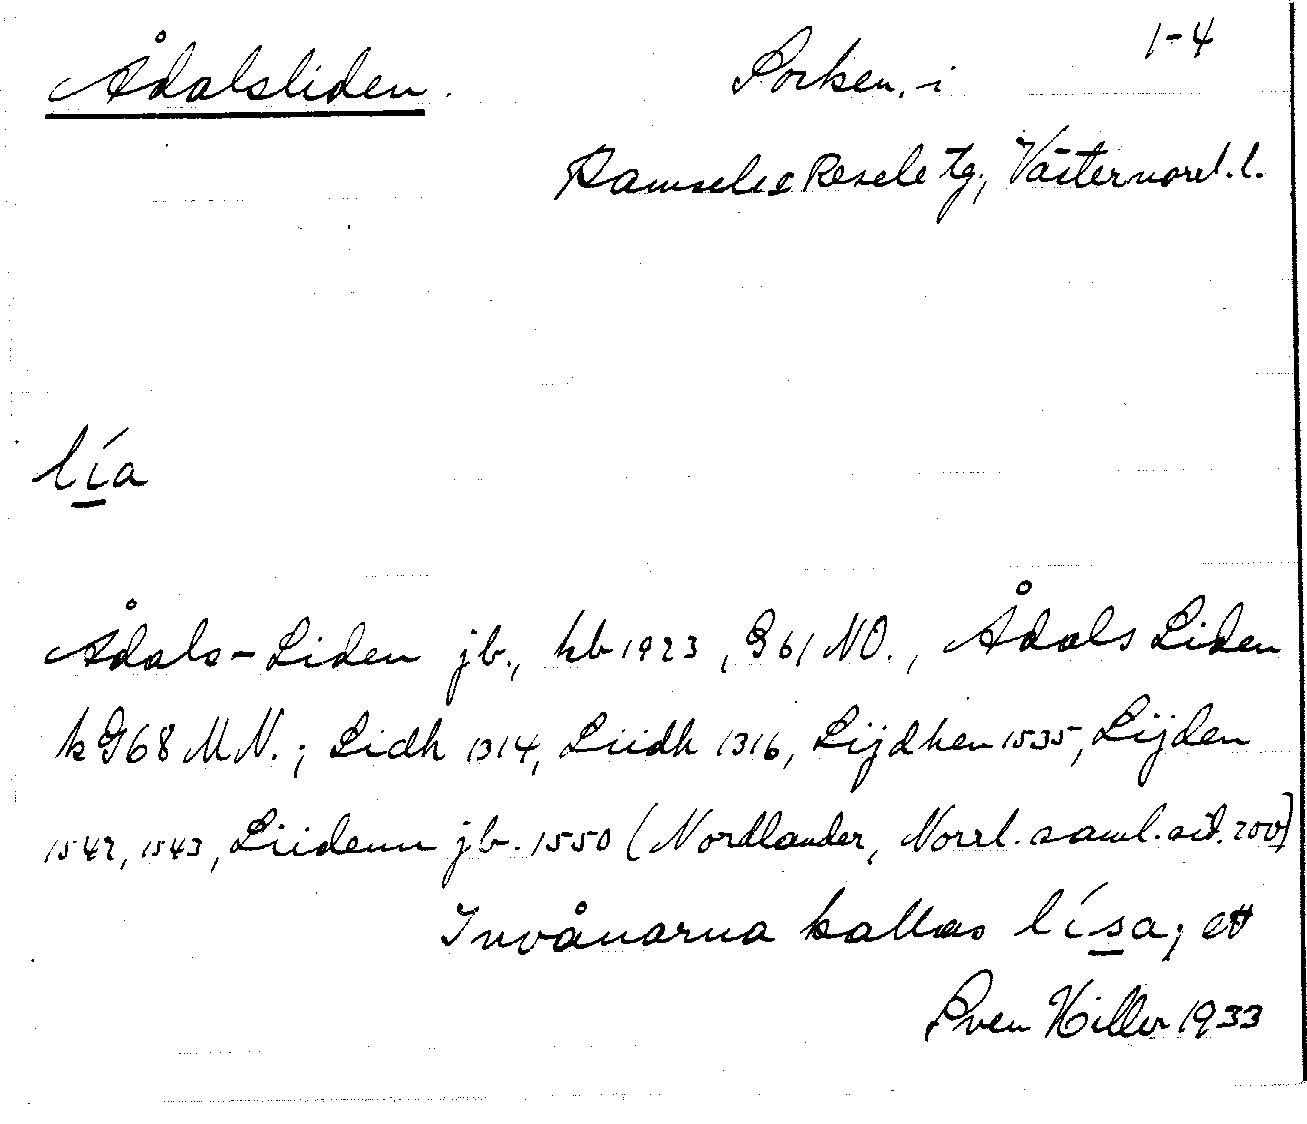 1-4
Ådalsliden. Socken, i
Ramsele o Resele tg, Västernorrl. l.
lía
Ådals-Liden jb., kb 1923, G 61 NO., Ådals Liden
k G 68 M N.; Lidh 1314, Liidh 1316, Lijdhen 1535, Lijden
1542, 1543, Liidenn jb. 1550 (Nordlander, Norrl. saml. sid. 200)
Invånarna kallas lísa, ett
Sven Hiller 1933